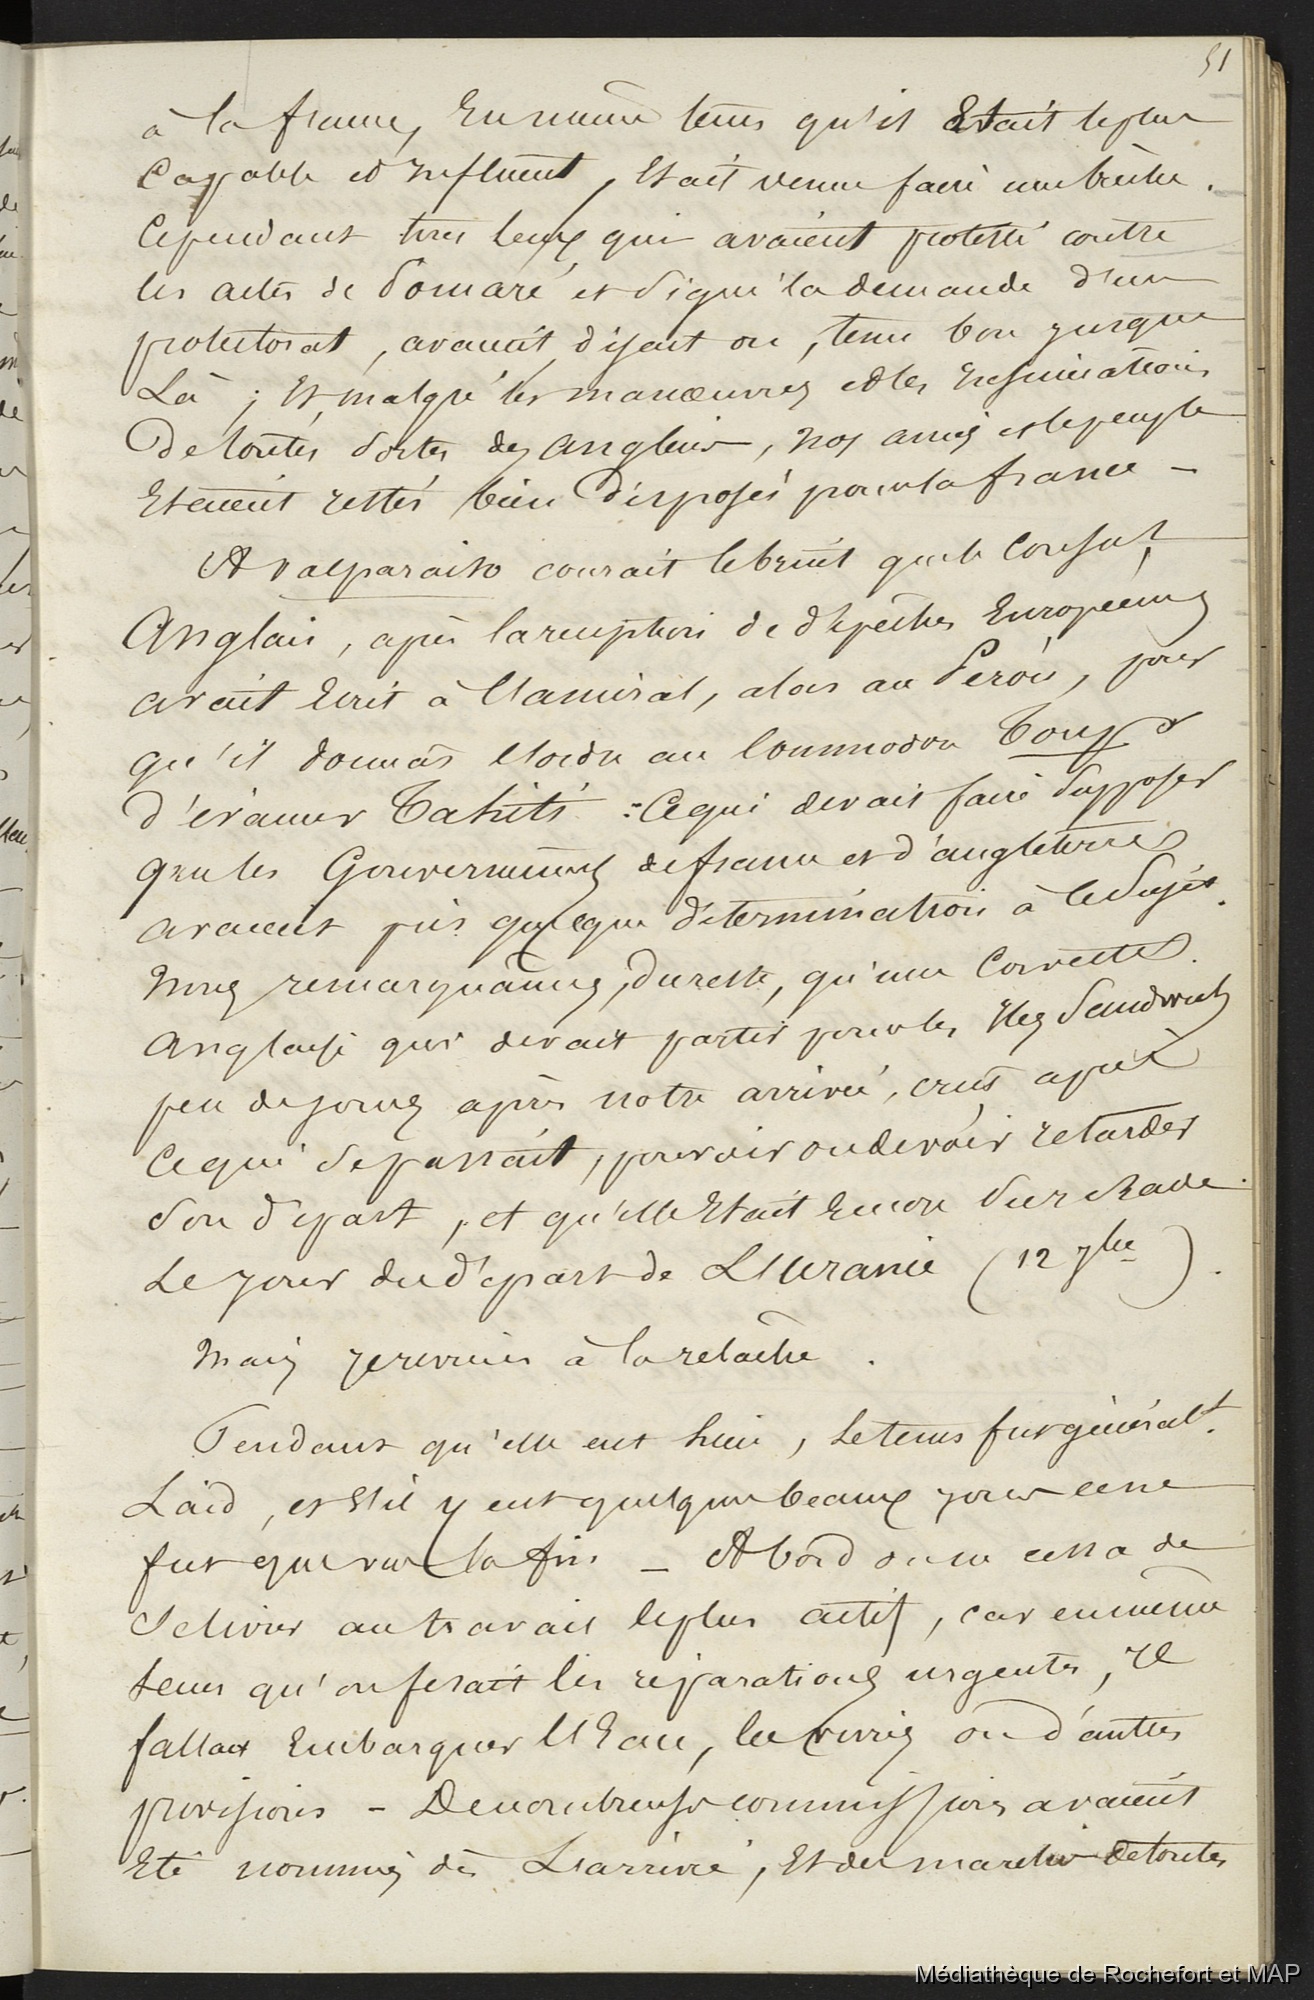 51
à la france, En même tems qu'il Etait le plus
Capable et Influent, Etait venu faire une brèche.
Cependant tous ceux qui avaient protesté contre
les actes de Pomaré et signé la demande d'un
protectorat, avaient, disait on, tenu bon jusque
Là ; Et, malgré les manœuvres et les Insinuations
De toutes sortes des anglais, nos amis et le peuple
Etaient restés bien disposés pour la france –
A valparaiso courait le bruit que le Consul
Anglais, après la reception de dépêches Européennes
avait Ecrit à l'amiral, alors au Pérou, pour
qu'il donnât l'ordre au Commodore Toup
d'évacuer Tahiti : Ce qui devait faire supposer
que les Gouvernements de france et d'angleterre
avaient pris quelque détermination à ce sujet.
Nous remarquâmes, du reste, qu'une Corvette
anglaise qui devait partir pour les Iles Sandwich
peu de jours après notre arrivée, crut après
ce qui se passait, pouvoir ou devoir retarder
son départ, et qu'elle Etait Encore sur Rade
Le jour du départ de L'Uranie (12 7bre).
Mais je reviens à la relâche.
Pendant qu'elle eut lieu, le tems fut généralt.
Laid, et s'il y eut quelques beaux jours ce ne
fut que vers la fin – A bord on ne cessa de
se livrer au travail le plus actif, car en même
tems qu'on ferait les réparations urgentes, Il
fallait Embarquer l'Eau, les vivres ou d'autres
provisions – De nombreuses commissions avaient
Eté nommées dès L'arrivée, Et des marchés de toutes
Médiathèque de Rochefort et MAP